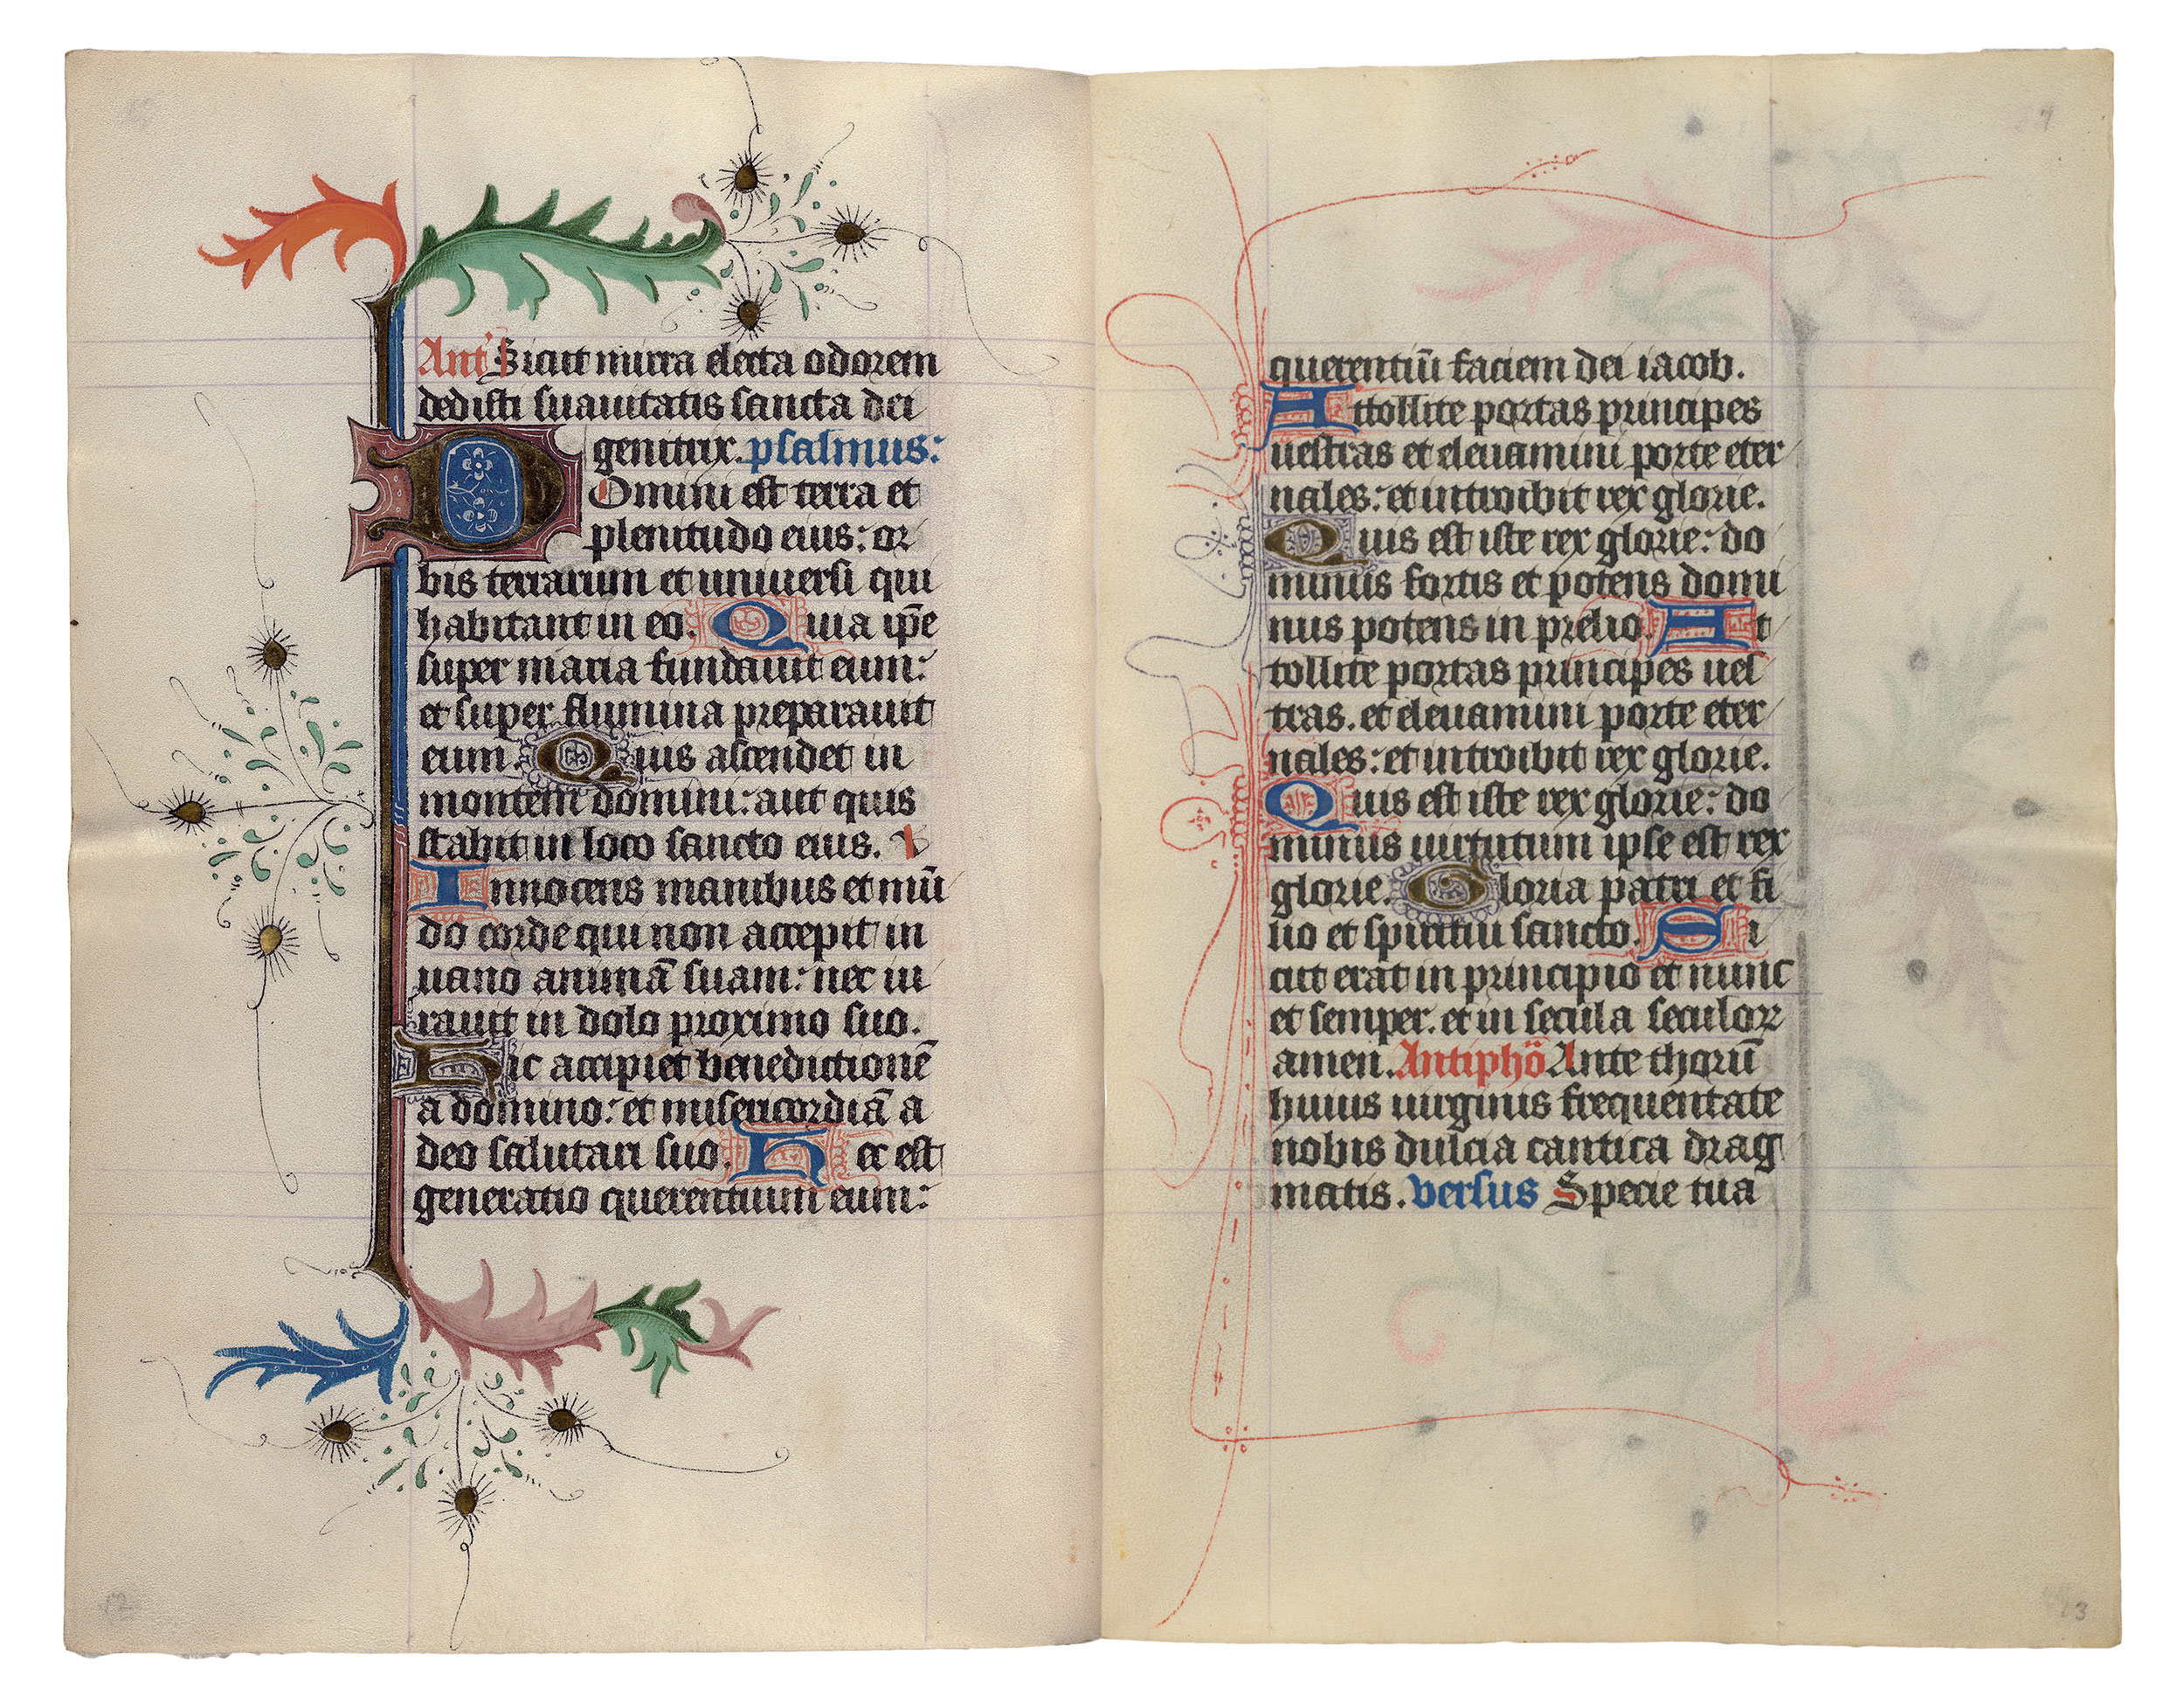 Ant' Sicut mirra electa odorem
dedisti suauitatis sancta dei
genitrix. psalmus:
Domini est terra et
plenitudo eius: or
bis terrarum et uniuersi qui
habitant in eo. Quia ip̄e
super maria fundauit eum:
et super flumina preparauit
eum. Quis ascendet in
montem domini: aut quis
stabit in loco sancto eius.
Innocens manibus et mū
do corde qui non accepit in
uano animā suam: nec iu
rauit in dolo proximo suo.
Hic accipiet benedictionē
a domino: et misericordiā a
deo salutari suo. Hec est
generatio querentium eum:
12
7
querentiū faciem dei iacob.
Attollite portas principes
uestras et eleuamini porte eter
nales: et introibit rex glorie.
Quis est iste rex glorie: do
minus fortis et potens domi
nus potens in prelio. At
tollite portas principes ues
tras. et eleuamini porte eter
nales: et introibit rex glorie.
Quis est iste rex glorie: do
minus uirtutum ipse est rex
glorie. Gloria patri et fi
lio et spiritui sancto. Si
cut erat in principio et nunc
et semper. et in secula seculorꝝ
amen. Antiphō Ante thorū
huius uirginis frequentate
nobis dulcia cantica drag
matis. versus Specie tua
13